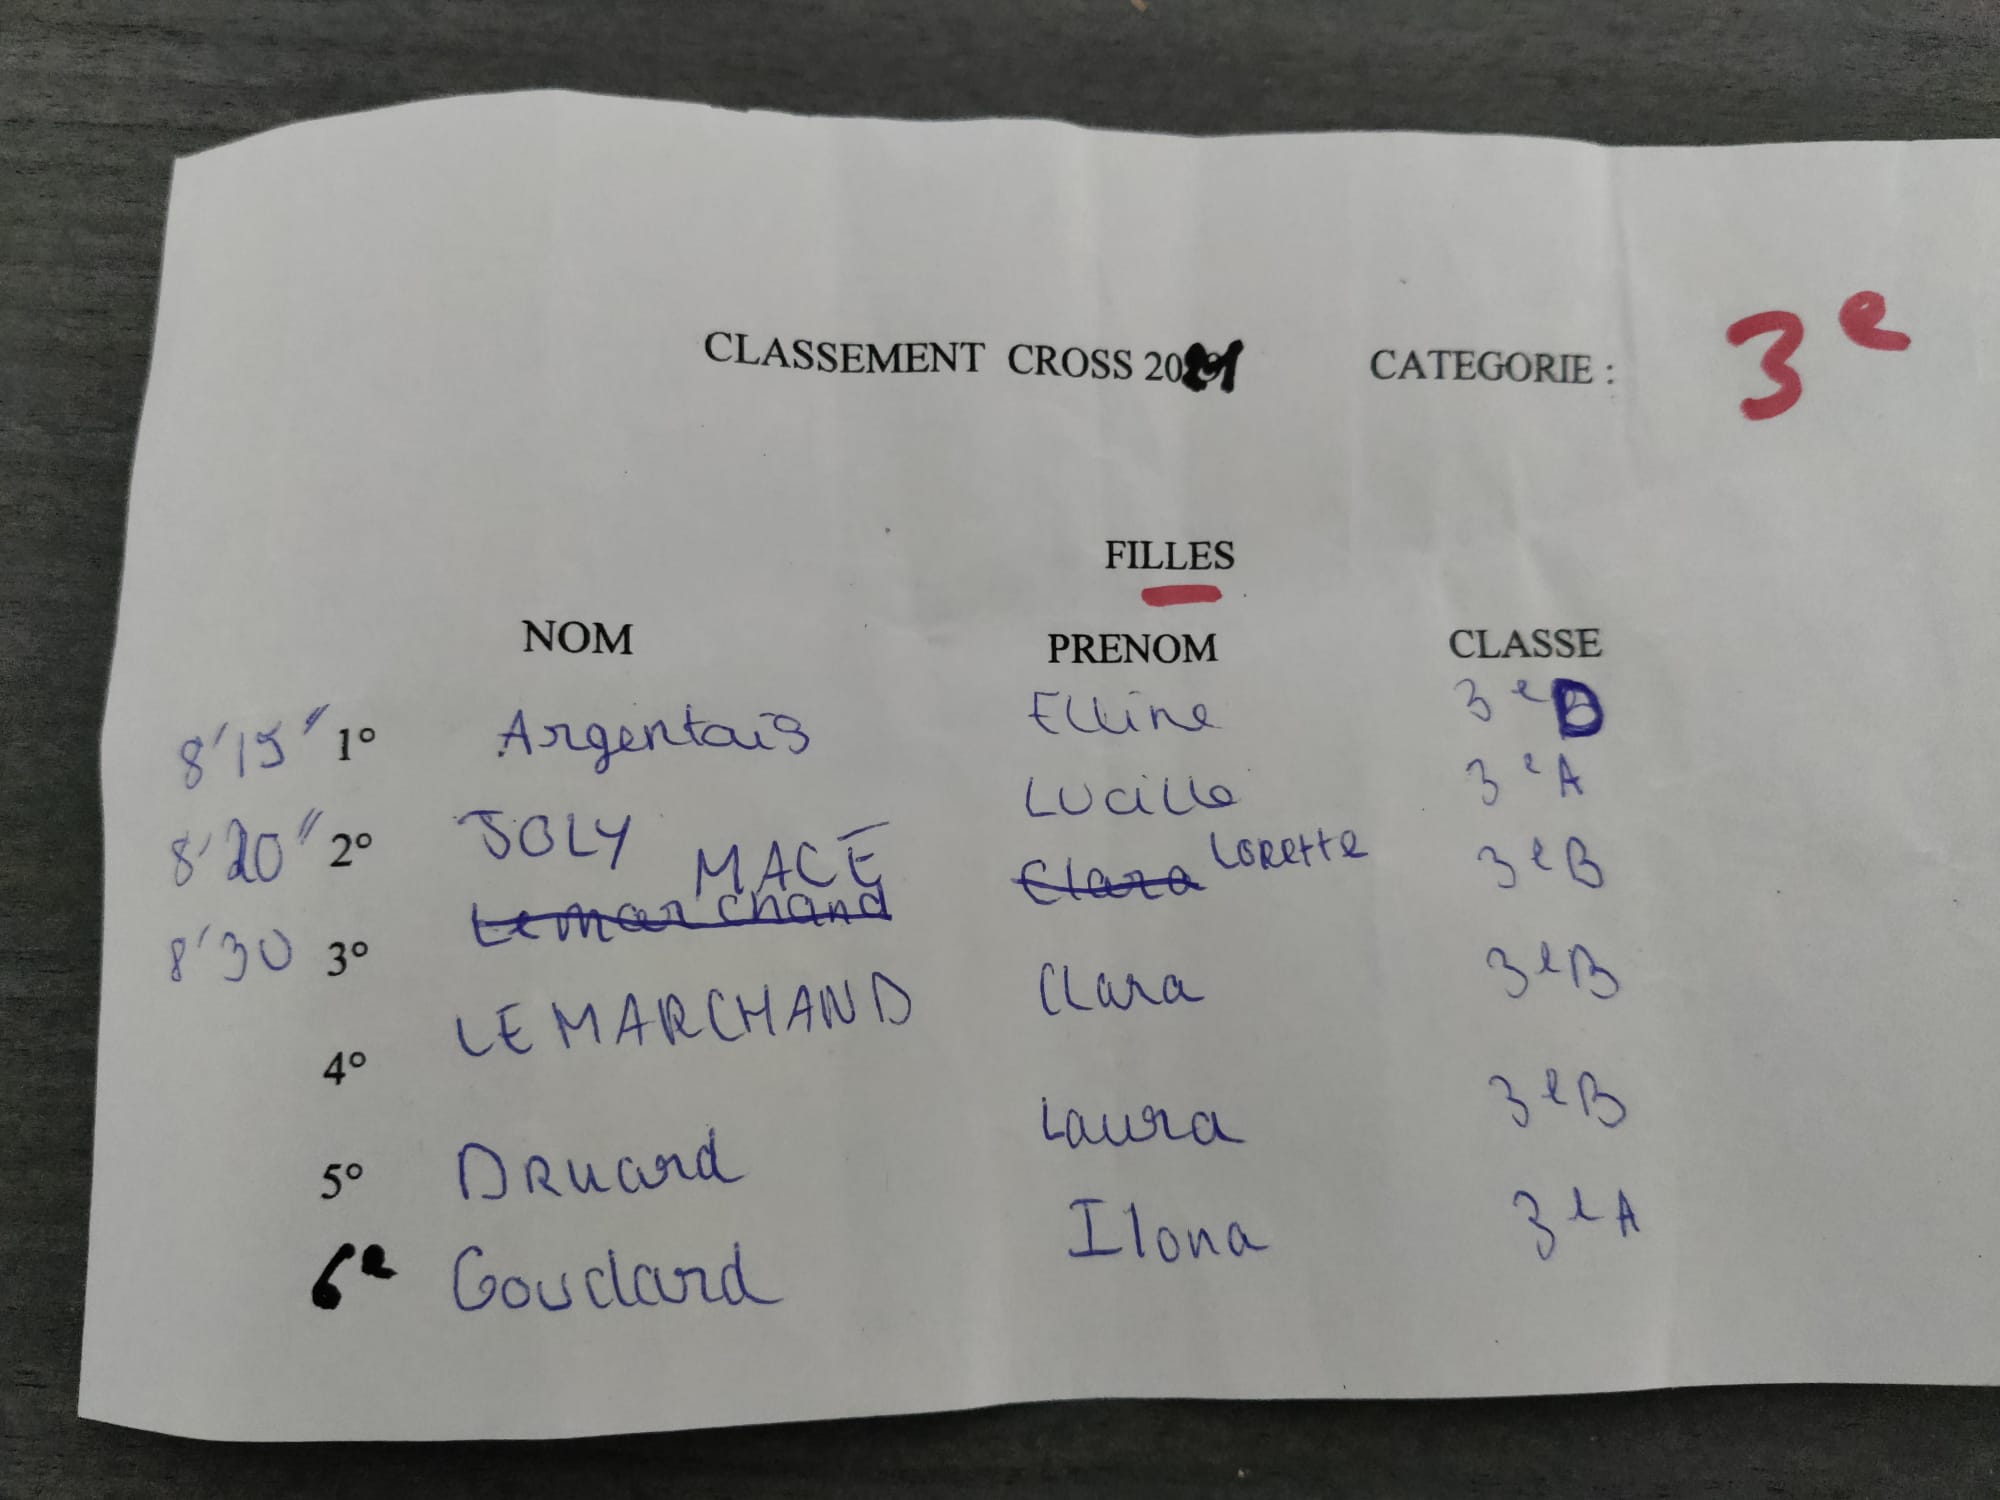 CLASSEMENT CROSS 2021 CATEGORIE : 3e
FILLES
NOM PRENOM CLASSE
8'15" 1° Argentais Elline 3e D
8'20" 2° JOLY Lucille 3e A
8'30 3° Lemarchand MACÉ Clara Lorette 3e B
4° LEMARCHAND Clara 3e B
5° Druard Laura 3e B
6e Goudard Ilona 3e A